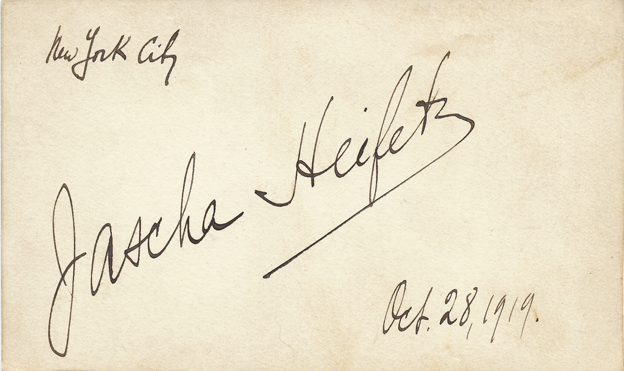 New York City
Jascha Heifetz
Oct. 28, 1919.